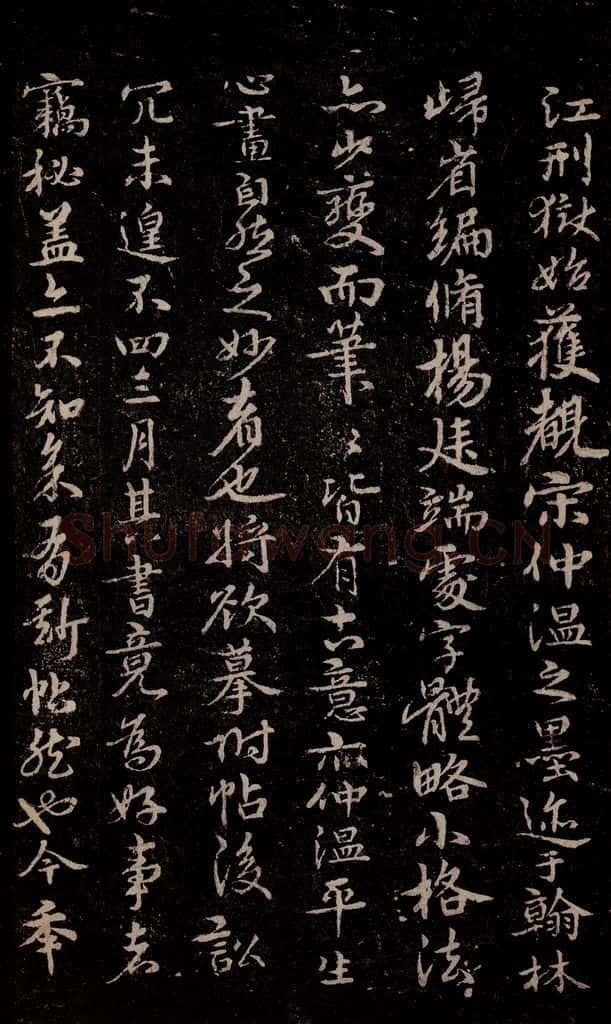 江刑獄始獲觀宋仲溫之墨迹于翰林
歸省編脩楊廷端處字體略小格法
亦少變而筆〻皆有古意亦仲溫平生
心畫自然之妙者也將欲摹附帖後訟
冗未遑不四三月其書竟為好事者
竊秘蓋亦不知余有新帖然也今年
ShufaWang.CN